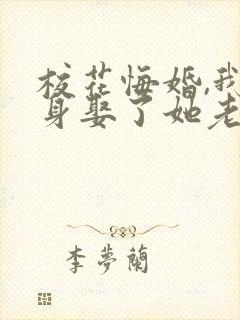 校花悔婚,我
身娶了她老
李夢蘭